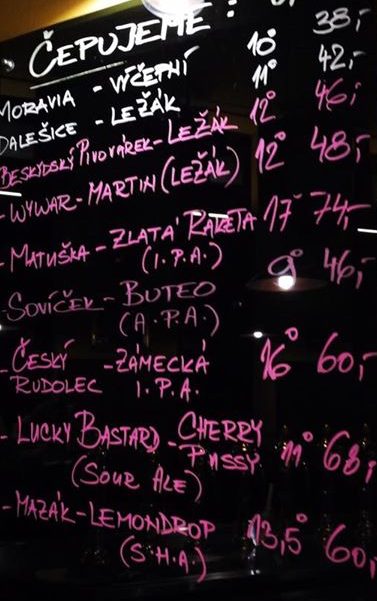 ČEPUJEME:
MORAVIA - VÝČEPNÍ 10° 38,-
DALEŠICE - LEŽÁK 11° 42,-
BESKYDSKÝ PIVOVÁREK - LEŽÁK 12° 46,-
- WYWAR - MARTIN (LEŽÁK) 12° 48,-
- MATUŠKA - ZLATÁ RAKETA 17° 74,-
(I.P.A.)
- SOVÍČEK - BUTEO 9° 46,-
(A.P.A.)
- ČESKÝ - ZÁMECKÁ 16° 60,-
RUDOLEC I.P.A.
- LUCKY BASTARD - CHERRY
PUSSY 11° 68,-
(SOUR ALE)
- MAZÁK - LEMONDROP 13,5° 60,-
(S.H.A.)